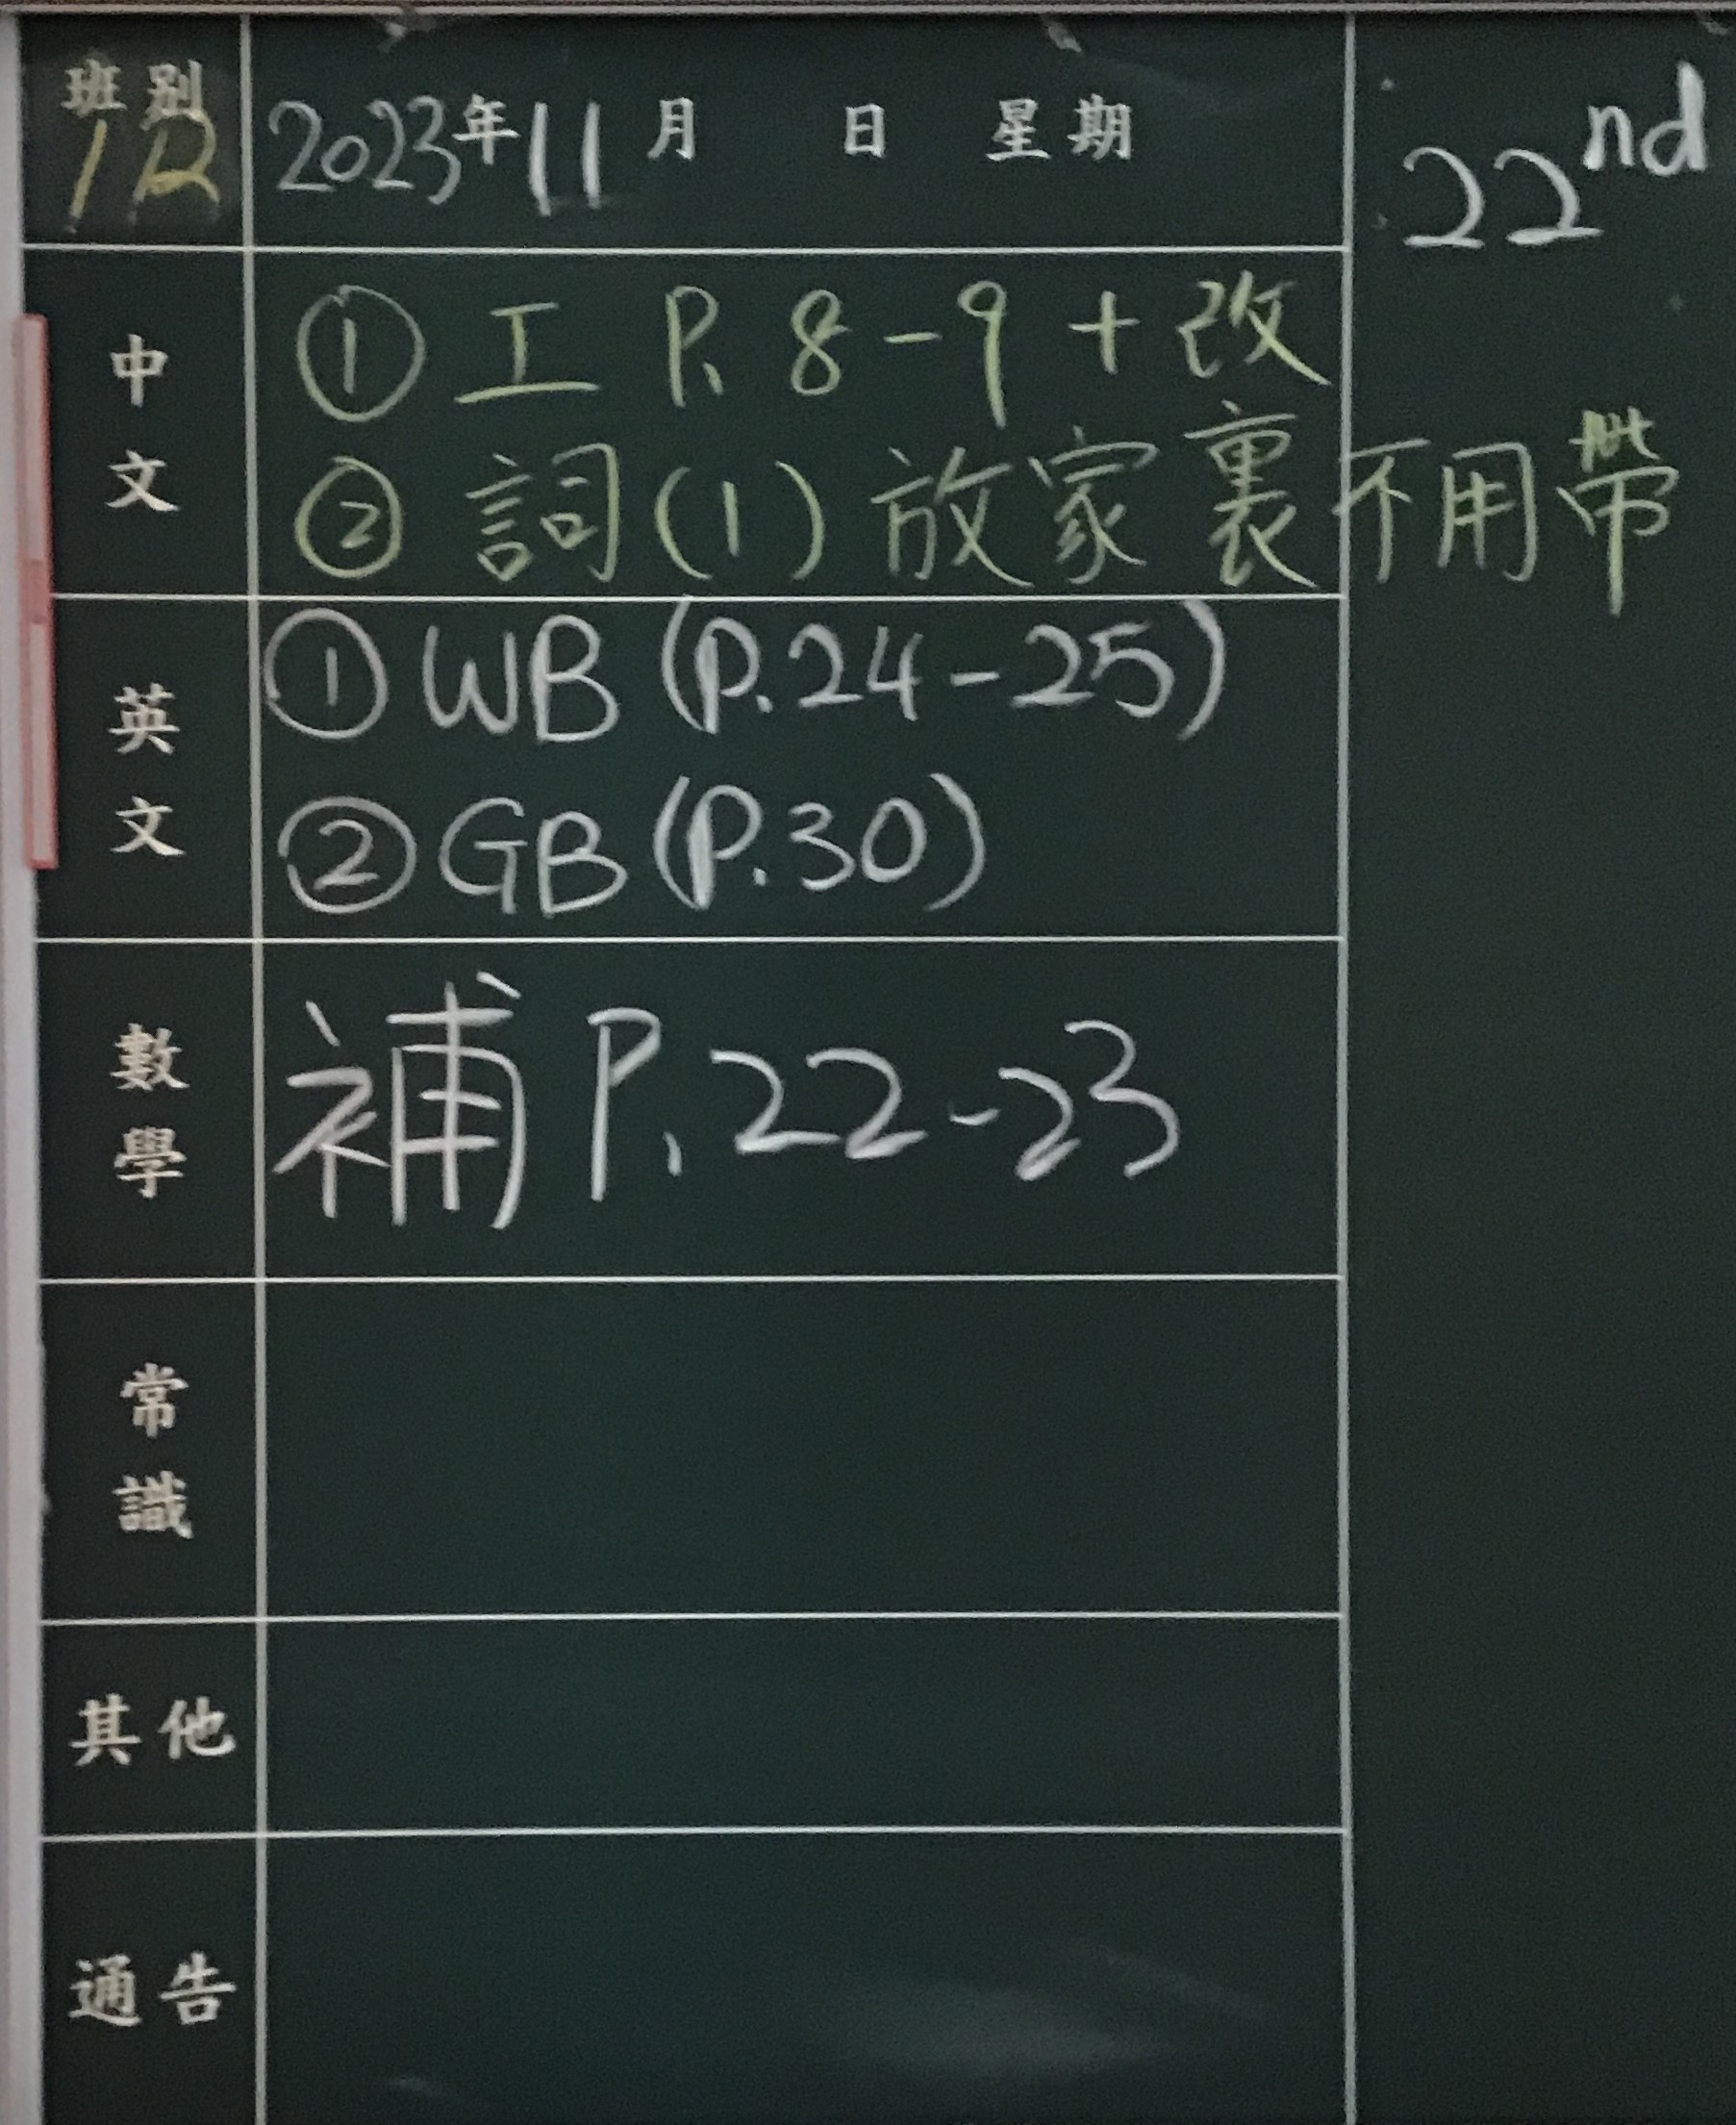 班別 2023年11月 日 星期 22nd
1B
中文
① 工 P. 8-9 + 改
② 詞(1) 放家裏不用帶
英文
① WB (P.24-25)
② GB (P.30)
數學
補 P. 22-23
常識
其他
通告